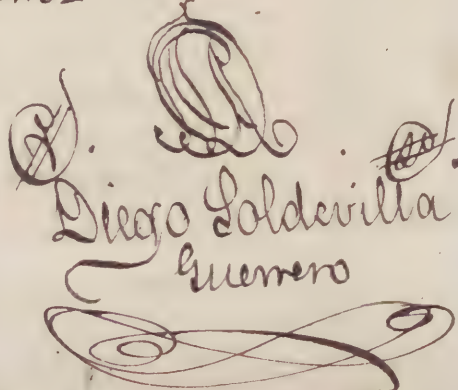 Diego Soldevilla
Guerrero